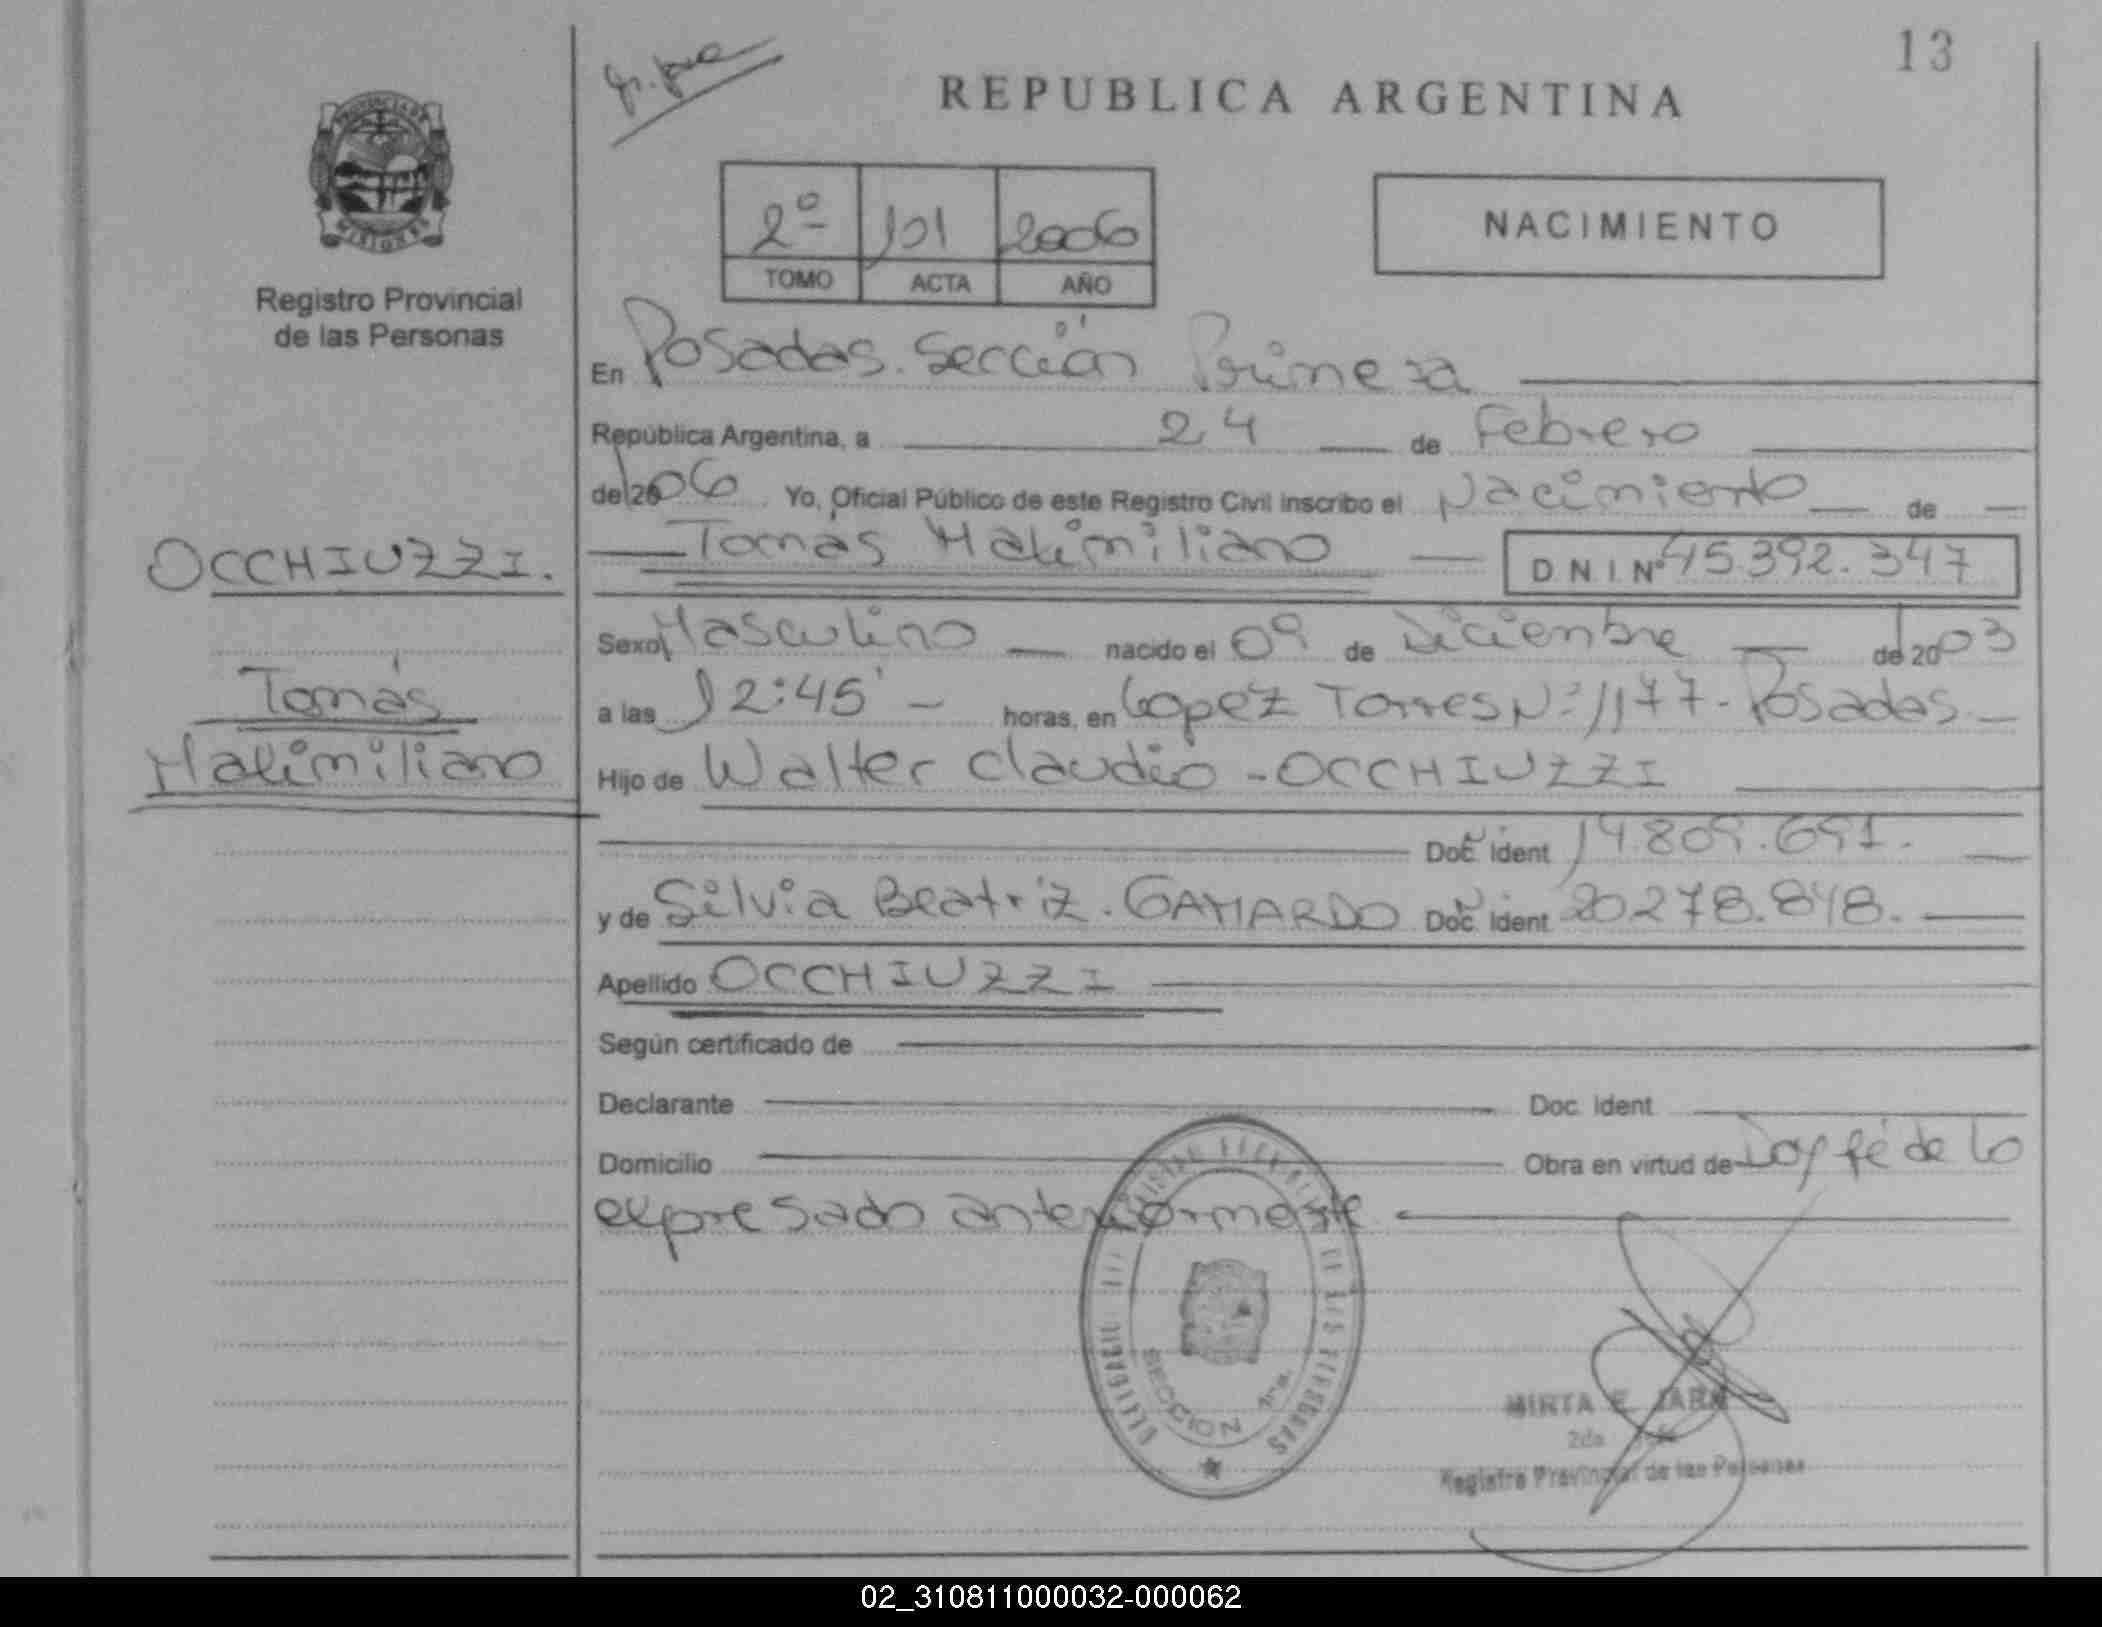 13
REPUBLICA ARGENTINA
PROVINCIA DE
MISIONES
Registro Provincial
de las Personas
2º 101 2006
TOMO ACTA AÑO
NACIMIENTO
En Posadas. Sección Primera
República Argentina, a 24 de Febrero
del 2006 Yo, Oficial Público de este Registro Civil inscribo el Nacimiento de
Tomás Maximiliano D N I Nº 45.392.347
OCCHIUZZI.
Tomás
Maximiliano
Sexo Masculino nacido el 09 de Diciembre del 2003
a las 12:45' horas, en Lopez Torres Nº 1177 - Posadas
Hijo de Walter Claudio - OCCHIUZZI
Doc Ident 14.809.691.
y de Silvia Beatriz. GAMARDO Doc Ident 20.278.848.
Apellido OCCHIUZZI
Según certificado de
Declarante Doc. Ident
Domicilio Obra en virtud de Doy fé de lo
expresado anteriormente
DE LAS PERSONAS
SECCION 1ra.
MIRTA E. JARA
2do Jefe
Registro Provincial de las Personas
02_310811000032-000062